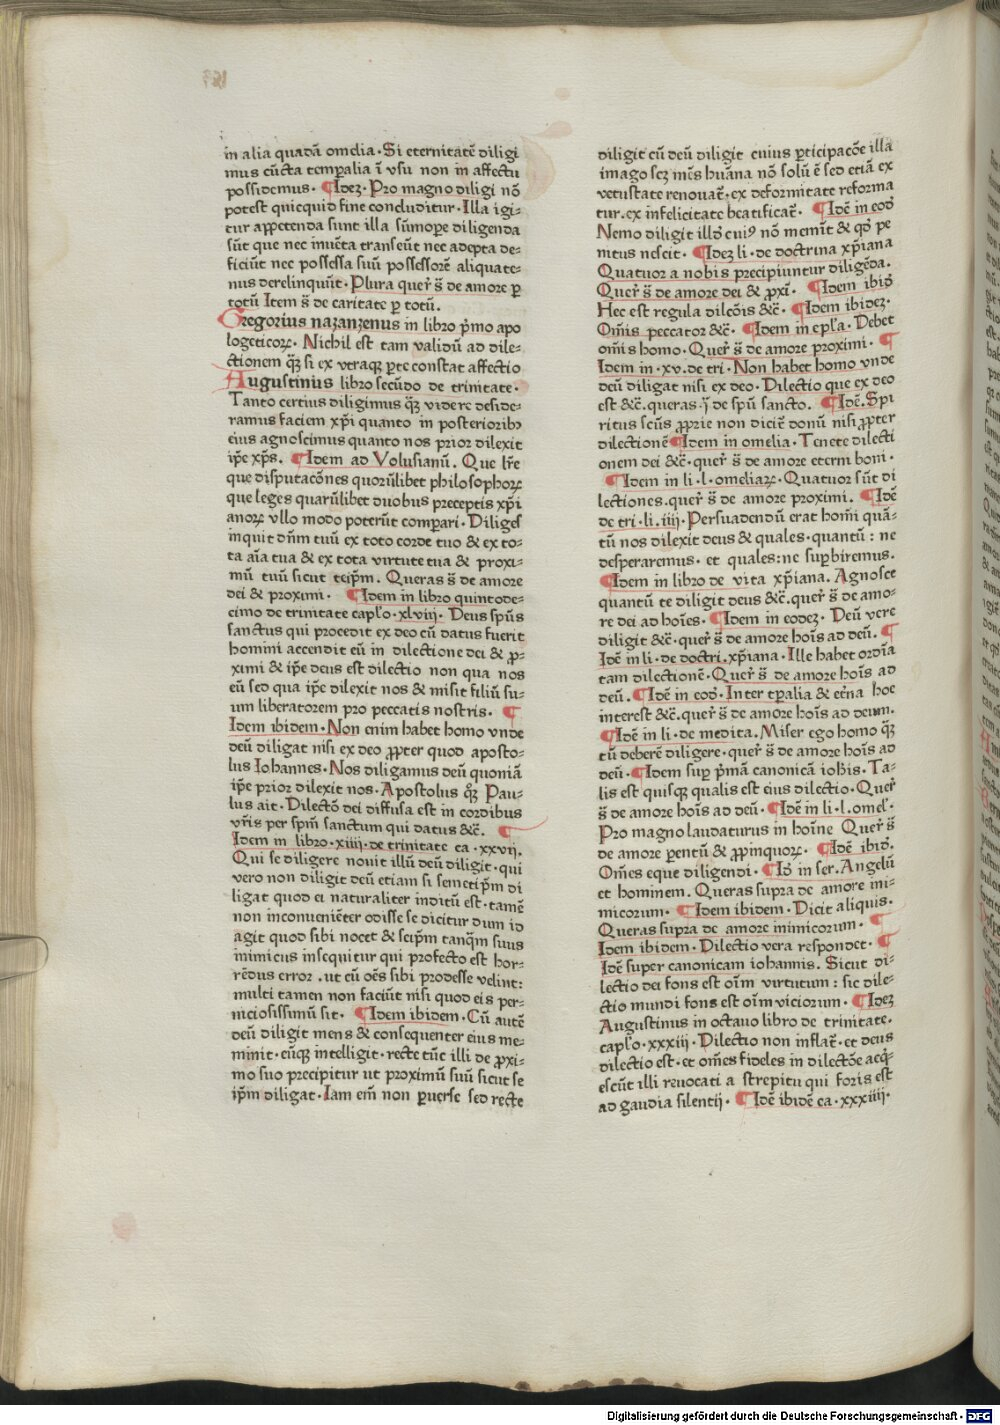 in alia quadā omelia·Si eternitatē diligi
mus cūcta temꝑalia ī vsu non in affectu
possidemus· ¶Ideʒ·Pro magno diligi nō
potest quicquid fine concluditur·Illa igi⸗
tur appetenda sunt illa sūmope diligenda
sūt que nec inuēta transeūt nec adepta de⸗
ficiūt nec possessa suū possessorē aliquate⸗
nus derelinquūt·Plura quer̄ s̄ de amore ꝑ
totū Item s̄ de caritate ꝑ totū.
Gregorius nazanzenus in libro p̄mo apo
logeticoꝝ·Nichil est tam validū ad dile⸗
ctionem qʒ̄ si ex vtraqʒ ꝑte constat affectio
Augustinus libro secūdo de trinitate·
Tanto certius diligimus qʒ̄ videre deside⸗
ramus faciem xp̄i quanto in posteriorib9
eius agnoscimus quanto nos prior dilexit
ip̄e xp̄s. ¶Idem ad Volusianū. Que lr̄e
que disputacōnes quorūlibet philosophoꝝ
que leges quarūlibet duobus preceptis xp̄i
anoꝝ vllo modo poterūt compari·Diliges
inquit dn̄m tuū ex toto corde tuo & ex to⸗
ta aīa tua & ex tota virtute tua & proxi⸗
mū tuū sicut teip̄m. Queras s̄ de amore
dei & proximi· ¶Idem in libro quintode⸗
cimo de trinitate cap̄lo·xlviij·Deus sp̄us
sanctus qui procedit ex deo cū datus fuerit
homini accendit eū in dilectione dei & ꝓ⸗
ximi & ip̄e deus est dilectio non qua nos
eū sed qua ip̄e dilexit nos & misit filiū su⸗
um liberatorem pro peccatis nostris. ¶
Idem ibidem·Non enim habet homo vnde
deū diligat nisi ex deo ꝓpter quod aposto⸗
lus Iohannes·Nos diligamus deū quoniā
ip̄e prior dilexit nos·Apostolus qʒ̄ Pau⸗
lus ait·Dilectō dei diffusa est in cordibus
vr̄is per sp̄m sanctum qui datus &c̄. ¶
Idem in libro·xiiii·de trinitate ca·xxvij.
Qui se diligere nouit illū deū diligit·qui
vero non diligit deū etiam si semetip̄m di
ligat quod ei naturaliter inditū est·tamē
non inconueniēter odisse se dicitur dum id
agit quod sibi nocet & seip̄m tanqʒ̄ suus
inimicus insequitur qui profecto est hor⸗
rēdus error·ut cū oēs sibi prodesse velint:
multi tamen non faciūt nisi quod eis per⸗
niciosissimū sit· ¶Idem ibidem·Cū autē
deū diligit mens & consequenter eius me⸗
minit·eūqʒ intelligit·recte tūc illi de ꝓxi⸗
mo suo precipitur ut proximū suū sicut se
ip̄m diligat·Iam em̄ non ꝑuerse sed recte
diligit cū deū diligit cuius ꝑticipacōe illa
imago scʒ mēs hūana nō solū ē sed etiā ex
vetustate renouat̄·ex deformitate reforma
tur·ex infelicitate beatificat̄· ¶Idē in eod̄
Nemo diligit illd̄ cui9 nō memīt & qd̄ pe
nitus nescit· ¶Ideʒ li·de doctrina xp̄iana
Quatuor a nobis precipiuntur diligēda.
Quer̄ s̄ de amore dei & ꝓxī· ¶Idem ibid̄
Hec est regula dilcōis &c̄· ¶Idem ibideʒ·
Om̄is peccator &c̄· ¶Idem in ep̄la·Debet
om̄is homo·Quer̄ s̄ de amore proximi· ¶
Idem in·xv·de tri·Non habet homo vnde
deū diligat nisi ex deo·Dilectio que ex deo
est &c̄.queras·j̄ de spū sancto. ¶Idē.Spi
ritus scūs ꝓprie non dicit̄ donū nisi ꝓpter
dilectionē¶Idem in omelia·Tenete dilecti
onem dei &c̄·quer̄ s̄ de amore eterni boni·
¶Idem in li·l·omeliaꝝ·Quatuor sūt di
lectiones.quer̄ s̄ de amore proximi. ¶Idē
de tri·li·iiij·Persuadendū erat homī quā⸗
tū nos dilexit deus & quales·quantū: ne
desperaremus·et quales:ne suꝑbiremus.
¶Idem in libro de vita xp̄iana·Agnosce
quantū te diligit deus &c̄.quer̄ s̄ de amo⸗
re dei ad hoīes· ¶Idem in eodeʒ·Deū vere
diligit &c̄·quer̄ s̄ de amore hoīs ad deū. ¶
Idē in li·de doctri·xp̄iana·Ille habet ordīa
tam dilectionē·Quer̄ s̄ de amore hoīs ad
deū·¶Idē in eod̄·Inter tꝑalia & et̄na hoc
interest &c̄.quer̄ s̄ de amore hoīs ad deum.
¶Idē in li·de medita·Miser ego homo qʒ̄
tū deberē diligere·quer̄ s̄ de amore hoīs ad
deū·¶Idem suꝑ p̄mā canonicā ioh̄is·Ta⸗
lis est quisqʒ qualis est eius dilectio·Quer̄
s̄ de amore hoīs ad deū·¶Idē in li·l·omel̄·
Pro magno laudaturus in hoīne Quer̄ s̄
de amore ꝑentū & ꝓpinquoꝝ· ¶Idē ibid̄·
Om̄es eque diligendi·¶Id̄ in ser·Angelū
et hominem·Queras supra de amore ini⸗
micorum· ¶Idem ibidem·Dicit aliquis·
Queras supra de amore inimicorum· ¶
Idem ibidem·Dilectio vera respondet·¶
Idē super canonicam iohannis·Sicut di⸗
lectio dei fons est oīm virtutum: sic dile⸗
ctio mundi fons est oīm viciorum·¶Ideʒ
Augustinus in octauo libro de trinitate·
cap̄lo·xxxiij·Dilectio non inflat̄·et deus
dilectio est·et om̄es fideles in dilectōe acq̄⸗
escūt illi reuocati a strepitu qui foris est
ad gaudia silentij· ¶Idē ibidē ca·xxxiiij·
Digitalisierung gefördert durch die Deutsche Forschungsgemeinschaft - DFG